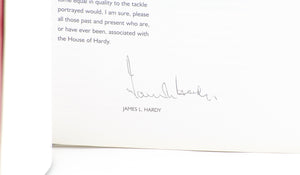 some equal in quality to the tackle
portrayed would, I am sure, please
all those past and present who are,
or have ever been, associated with
the House of Hardy.
JAMES L. HARDY